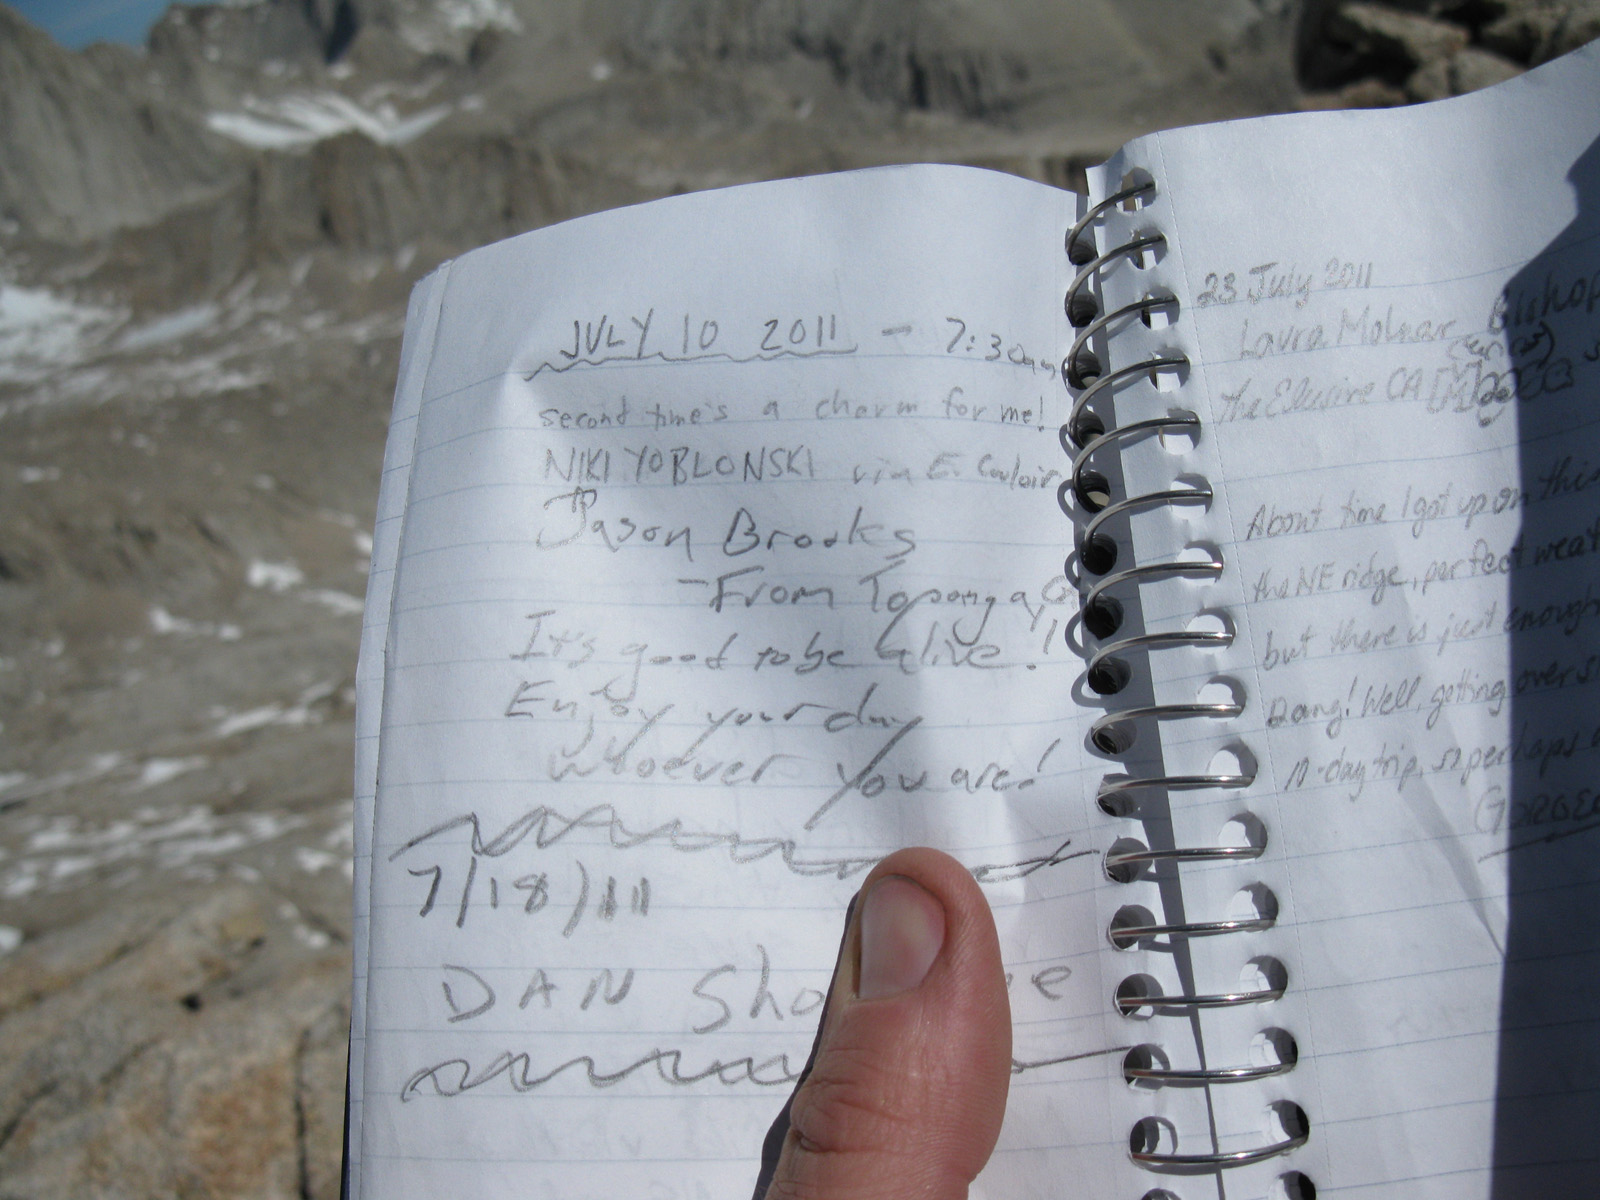 JULY 10 2011 - 7:30am
second time's a charm for me!
NIKI YOBLONSKI via E. Couloir
Jason Brooks
- From Topanga, Ca
It's good to be alive!
Enjoy your day
whoever you are!
7/18/11
DAN Sho
23 July 2011
Laura Molnar Bishop
the Elusive CA
About time I got up on this
the NE ridge, perfect
but there is just enough
Dang! Well, getting over
10-day trip, so perhaps